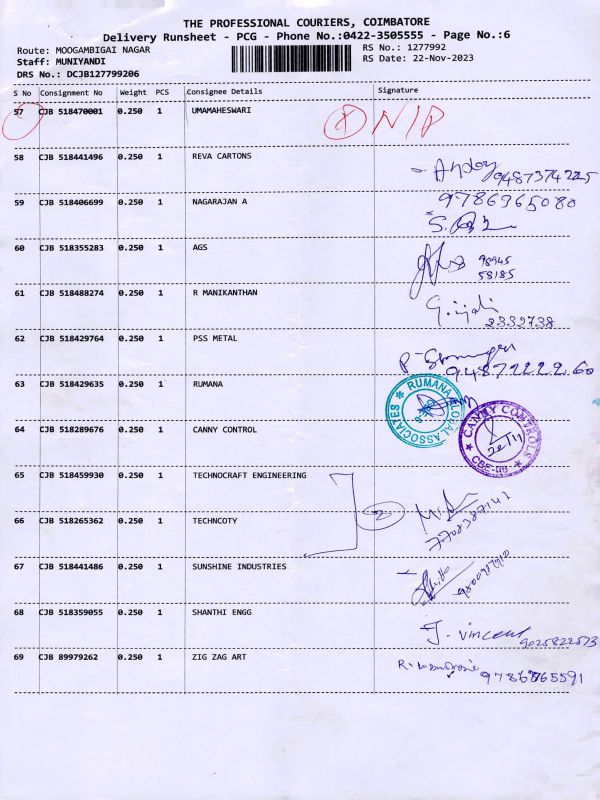 THE PROFESSIONAL COURIERS, COIMBATORE
Delivery Runsheet - PCG - Phone No.:0422-3505555 - Page No.:6
Route: MOOGAMBIGAI NAGAR
RS No.: 1277992
Staff: MUNIYANDI
RS Date: 22-Nov-2023
DRS No.: DCJB127799206
S No Consignment No Weight PCS Consignee Details Signature
57 CJB 518470001 0.250 1 UMAMAHESWARI
58 CJB 518441496 0.250 1 REVA CARTONS
9487374225
59 CJB 518406699 0.250 1 NAGARAJAN A 9786965080
60 CJB 518355283 0.250 1 AGS
98945
58185
61 CJB 518488274 0.250 1 R MANIKANTHAN
2332738
62 CJB 518429764 0.250 1 PSS METAL
63 CJB 518429635 0.250 1 RUMANA
RUMANA GLOBAL ASSOCIATES
64 CJB 518289676 0.250 1 CANNY CONTROL
CANNY CONTROLS
65 CJB 518459930 0.250 1 TECHNOCRAFT ENGINEERING
2
66 CJB 518265362 0.250 1 TECHNCOTY
67 CJB 518441486 0.250 1 SUNSHINE INDUSTRIES
68 CJB 518359055 0.250 1 SHANTHI ENGG
J. vincent
9025822573
69 CJB 89979262 0.250 1 ZIG ZAG ART